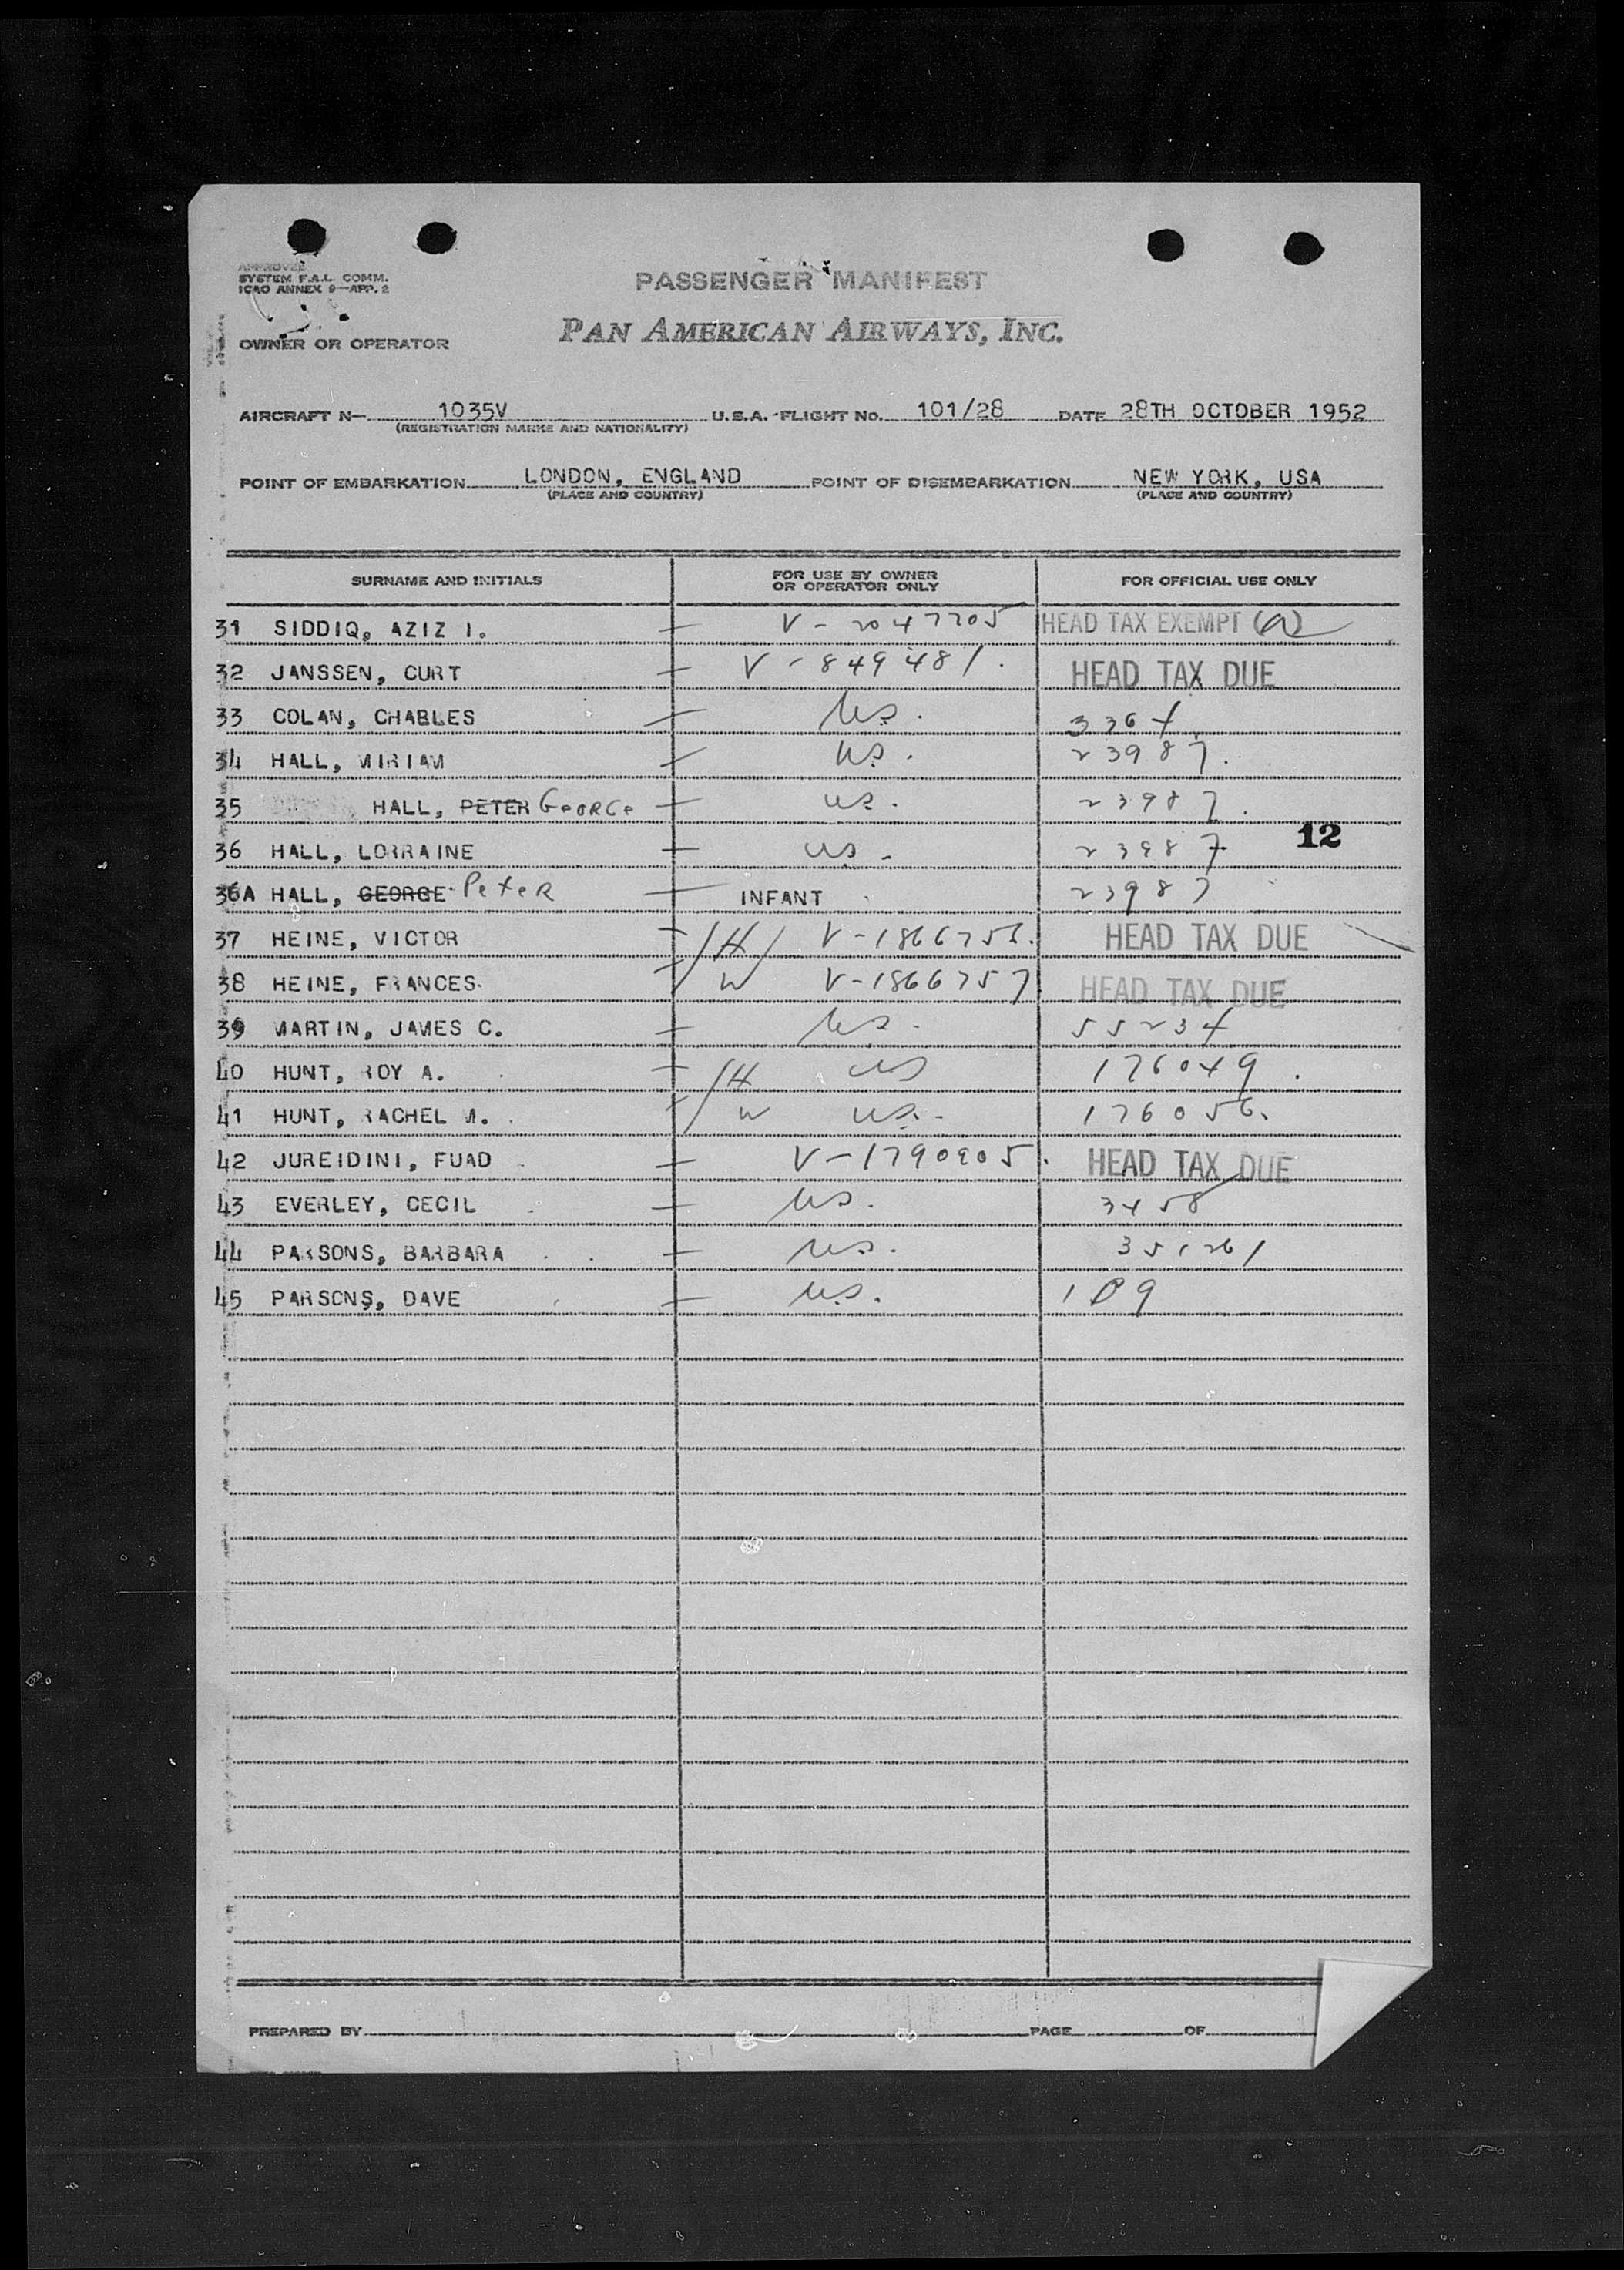 APPROVED
SYSTEM F.A.L. COMM.
ICAO ANNEX 9—APP. 2
PASSENGER MANIFEST
PAN AMERICAN AIRWAYS, INC.
OWNER OR OPERATOR
AIRCRAFT N— 1035V U.S.A. FLIGHT NO. 101/28 DATE 28TH OCTOBER 1952
(REGISTRATION MARKS AND NATIONALITY)
POINT OF EMBARKATION LONDON, ENGLAND POINT OF DISEMBARKATION NEW YORK, USA
(PLACE AND COUNTRY) (PLACE AND COUNTRY)
SURNAME AND INITIALS FOR USE BY OWNER OR OPERATOR ONLY FOR OFFICIAL USE ONLY
31 SIDDIQ, AZIZ I. — V-2047705 HEAD TAX EXEMPT
32 JANSSEN, CURT — V-849481. HEAD TAX DUE
33 COLAN, CHARLES — US. 3364
34 HALL, MIRIAM — US. 23987.
35 HALL, PETER GEORGE — US. 23987.
12
36 HALL, LORRAINE — US. 23987
36A HALL, GEORGE Peter — INFANT 23987
37 HEINE, VICTOR — H V-1866756. HEAD TAX DUE
38 HEINE, FRANCES. — W V-1866757 HEAD TAX DUE
39 MARTIN, JAMES C. — US. 55234
40 HUNT, ROY A. — H US 176049.
41 HUNT, RACHEL M. — W US. 176056.
42 JUREIDINI, FUAD — V-1790905. HEAD TAX DUE
43 EVERLEY, CECIL — US. 3458
44 PARSONS, BARBARA — US. 351261
45 PARSONS, DAVE — US. 109
PREPARED BY PAGE OF